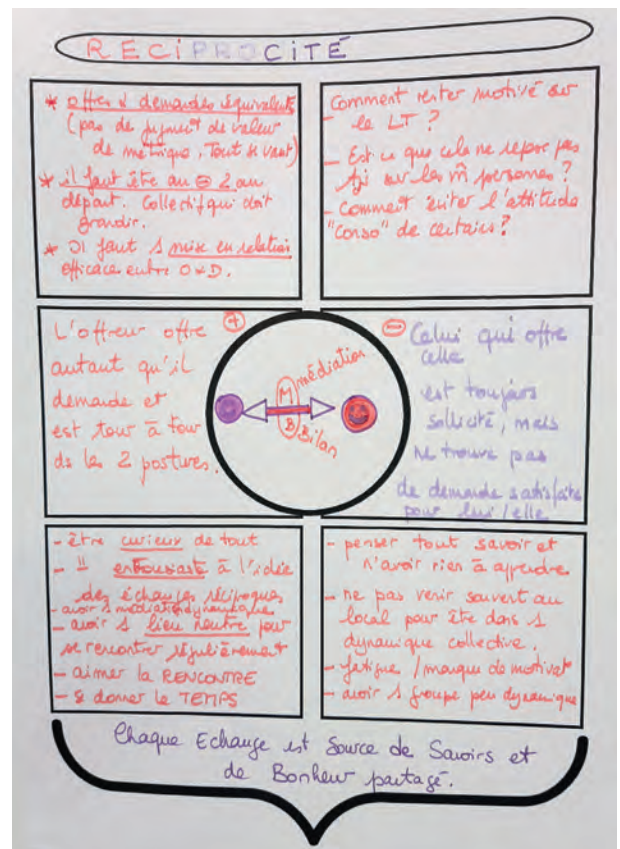 RECIPROCITÉ
* offres & demandes équivalentes
(pas de jugement de valeur
de métrique. Tout se vaut)
* il faut être au ⊖ 2 au
départ. Collectif qui doit
grandir.
* Il faut 1 mise en relation
efficace entre O & D.
Comment rester motivé sur
le LT ?
- Est ce que cela ne repose pas
tjs sur les m̂ personnes ?
- Comment éviter l'attitude
"conso" de certains ?
L'offreur offre ⊕
autant qu'il
demande et
est tour à tour
ds les 2 postures.
M médiation
B Bilan
⊖ Celui qui offre
celle
est toujours
sollicité, mais
ne trouve pas
de demande satisfaite
pour lui/elle
- être curieux de tout
- " enthousiaste à l'idée
des échanges réciproques
- avoir 1 médiation dynamique
- avoir 1 lieu neutre pour
se rencontrer régulièrement
- aimer la RENCONTRE
- se donner le TEMPS
- penser tout savoir et
n'avoir rien à apprendre
- ne pas venir souvent au
local pour être dans 1
dynamique collective.
- fatigue / manque de motivat°
- avoir 1 groupe peu dynamique
Chaque Echange est Source de Savoirs et
de Bonheur partagé.